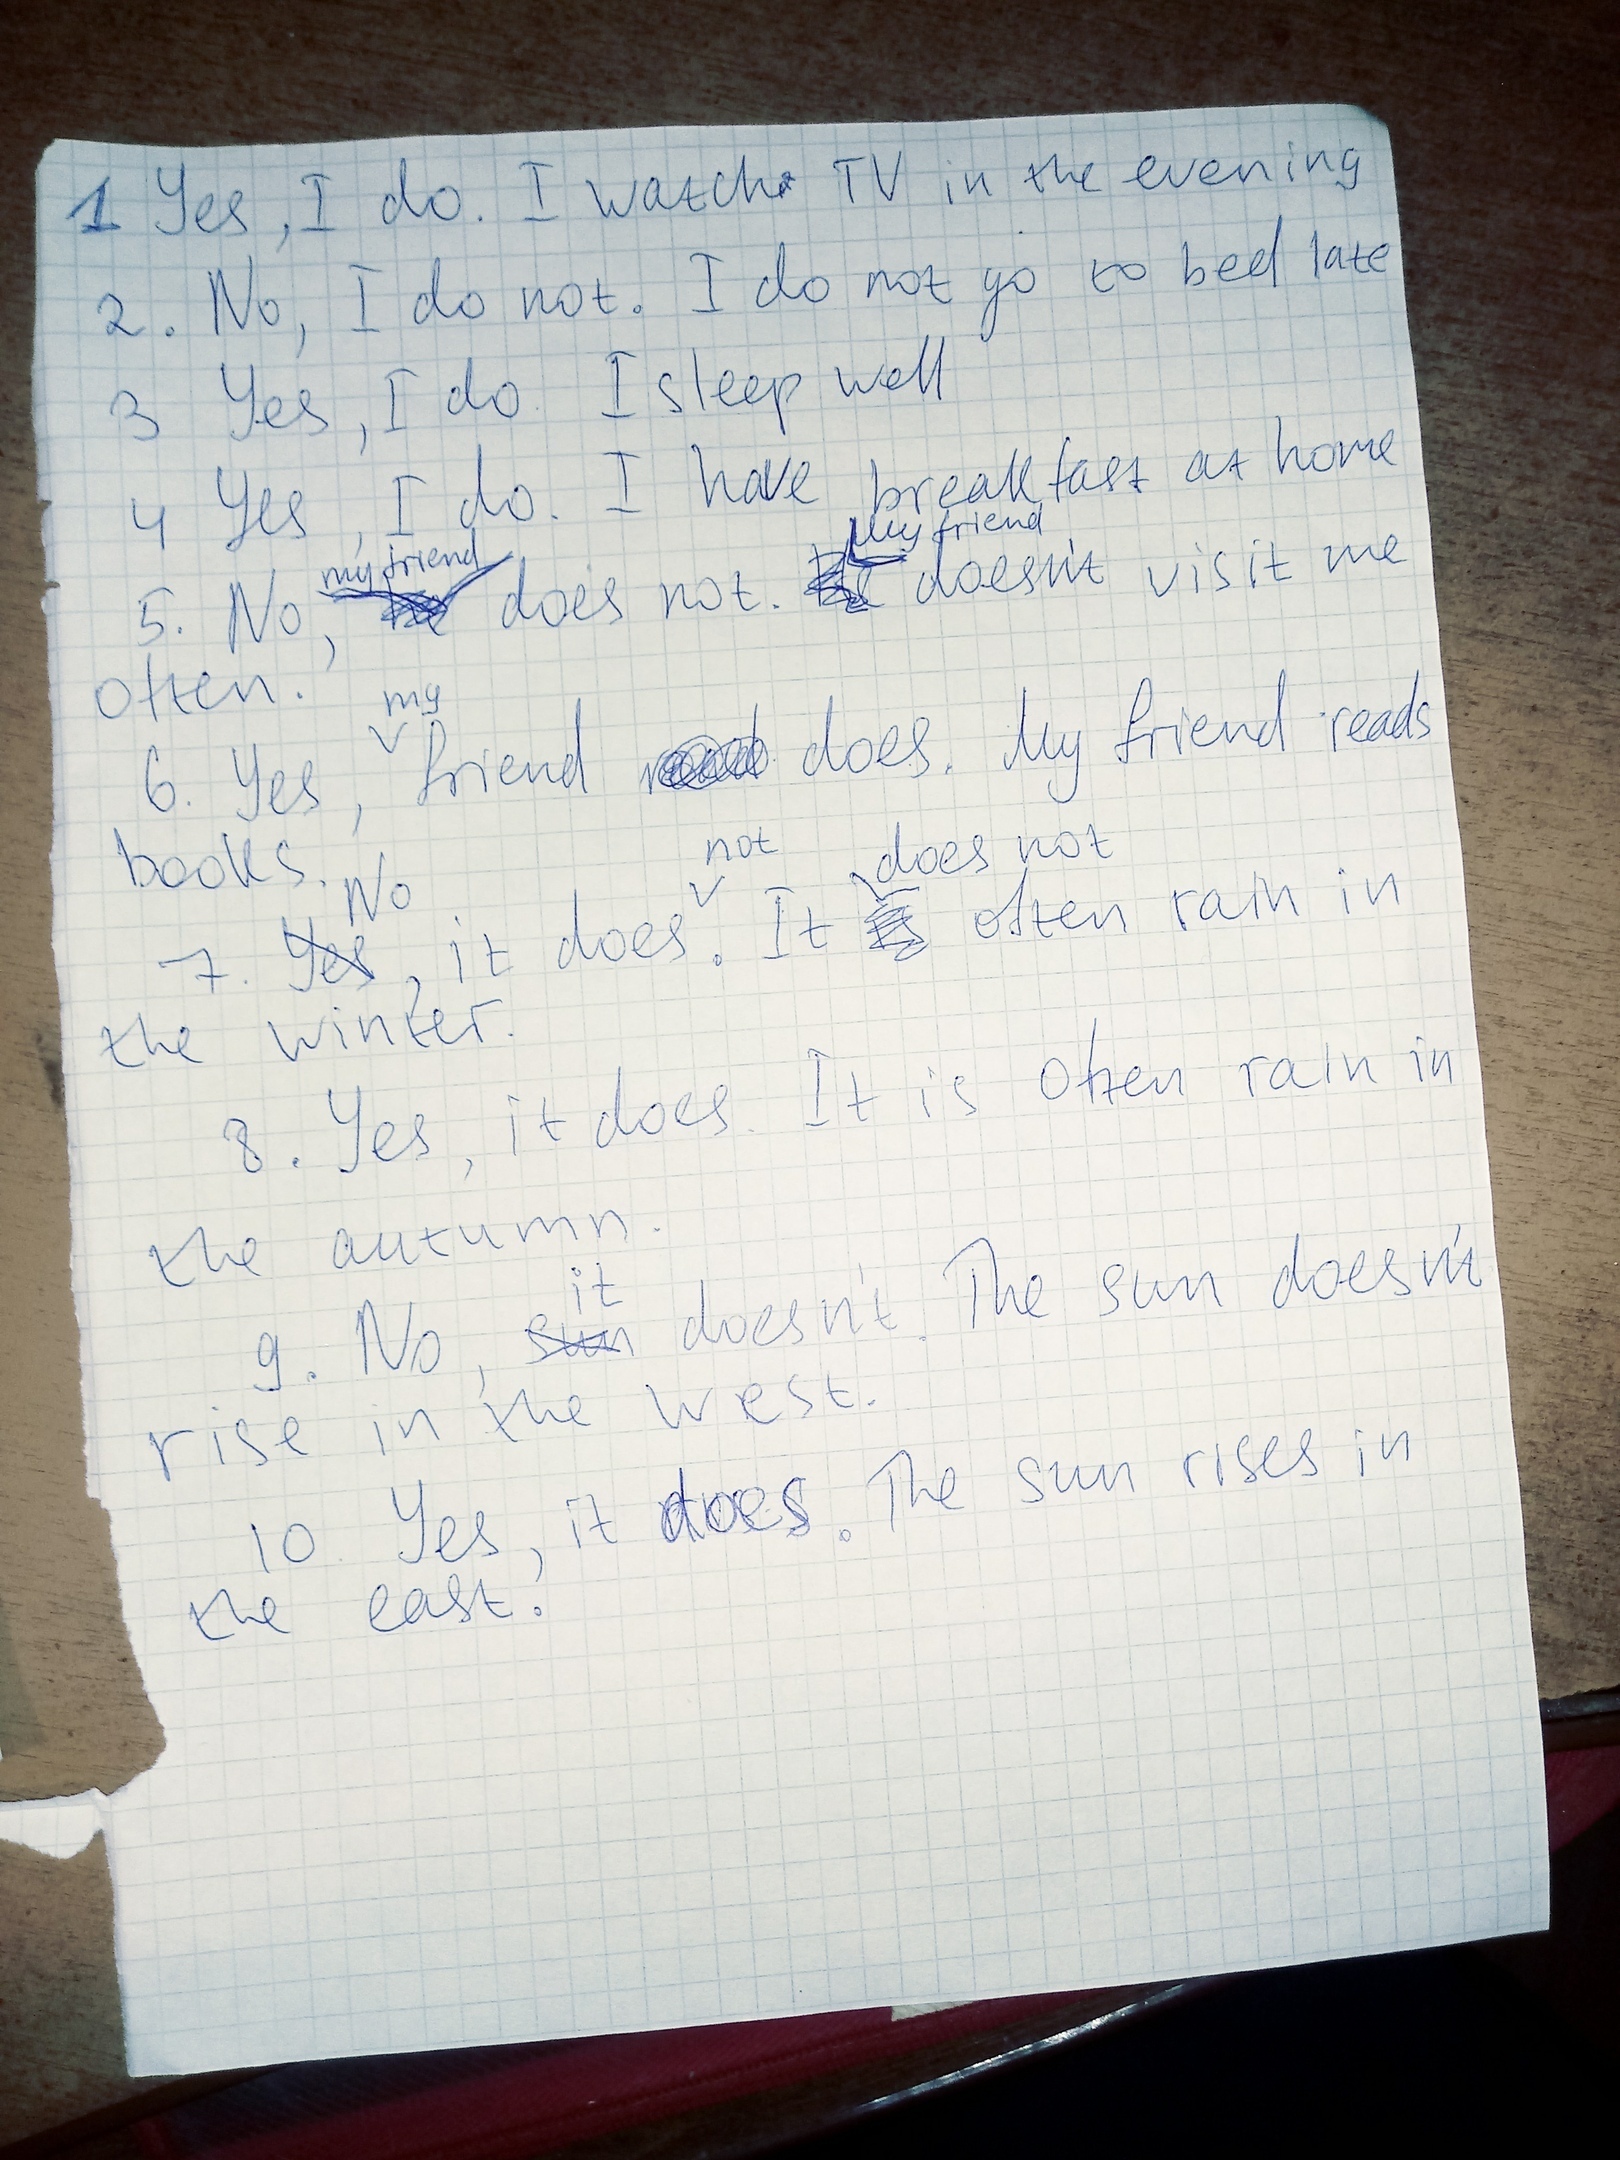 1 Yes, I do. I watch TV in the evening
2. No, I do not. I do not go to bed late
3 Yes, I do. I sleep well
4 Yes, I do. I have breakfast at home
5. No, my friend does not. My friend doesn't visit me
often.
6. Yes, my friend does. My friend reads
books.
7. No, it does not. It does not often rain in
the winter.
8. Yes, it does. It is often rain in
the autumn.
9. No, it doesn't. The sun doesn't
rise in the west.
10. Yes, it does. The sun rises in
the east.